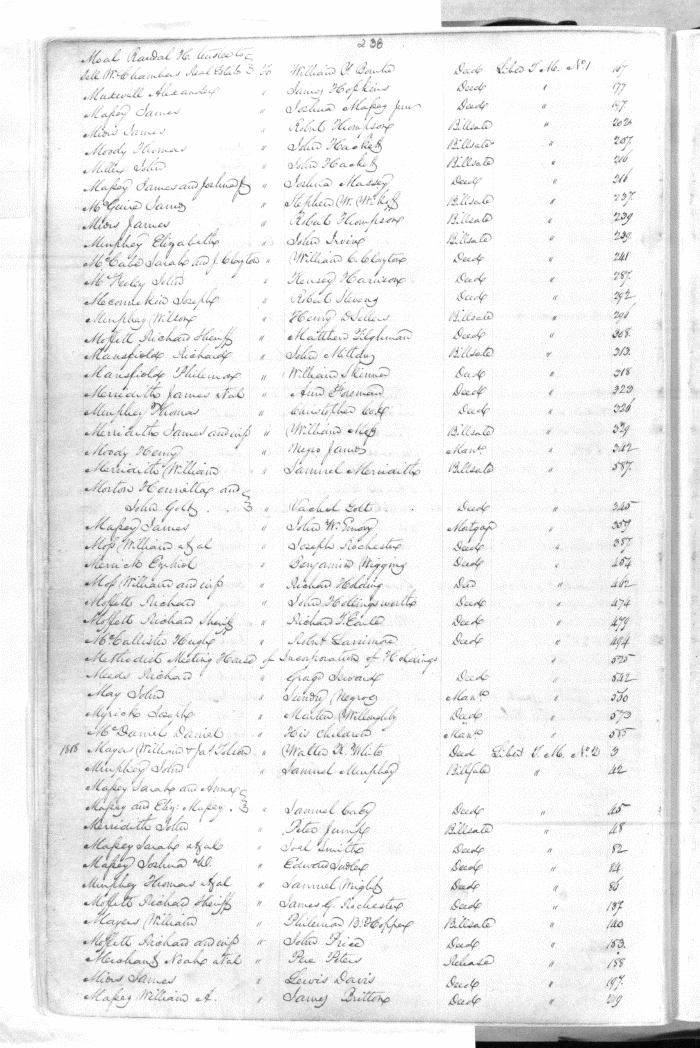 238
Moal Randal H. trustee to
Sell Wm Chambers Real Estate } To William Y. Bourke Deed Liber T. M. No 1 167
Maxwell Alexander " James Hopkins Deed " 177
Maſsey James " Joshua Maſsey Jun Deed " 197
Miers James " Robert Thompson Billsale " 202
Moody Thomas " John Hackett Billsale " 207
Miller John " John Hackett Billsale " 216
Maſsey James and Joshua " Joshua Massey Deed " 216
McGuire James " Stephen W. Billsale " 237
Miers James " Robert Thompson Billsale " 239
Murphey Elizabeth " John Irvine Billsale " 239
Sarah and J. Clayton " William C. Clayton Deed " 241
McFeeley John " Kensey Harrison Deed " 287
Meconnekin Joseph " Robert Stevens Deed " 292
Murphey William " Henry D Sellers Billsale " 296
Moffett Richard Sheriff " Matthew Tilghman Deed " 308
Mansfield Richard " John Billsale " 313
Mansfield Philemon " William Skinner Deed " 318
Merridith James et al " Ann Foreman Deed " 323
Murphey Thomas " Christopher Cox Deed " 326
Merridith James and wife " William Billsale " 329
Moody Henry " Negro James Manu " 342
Meridith William " Samuel Meridith Billsale " 587
Morton Henrietta and
John Golt } " Vachel Golt Deed " 345
Maſsey James " John W. Emory Mortgage " 359
Moſs William et al " Joseph Rochester Deed " 387
Merrick Ezekiel " Benjamin Wiggins Deed " 454
Moſs William and wife " Richard Holding Deed " 462
Moffett Richard " John Hollingsworth Deed " 474
Moffett Richard Sheriff " Richard T. Earle Deed " 479
McCallister Hugh " Robert Larrimore Deed " 494
Methodist Meeting House of Incorporation of Holdings " 525
Meeds Richard " Seward Deed " 542
May John " Sundry Negroes Manu " 550
Myrick Joseph " Martin Willoughby Deed " 573
McDaniel Daniel " His Children Manu " 585
1808 Mayer William & Jas Tolson " Walter K. White Deed Liber T. M. No 2 3
Murphey John " Samuel Murphey Billſale " 42
Maſsey Sarah and Anna
Maſsey and Eliz: Maſsey } " Samuel Caby Deed " 45
Merridith John " Peter Jump Billsale " 48
Maſsey Sarah et al " Joal Smith Deed " 82
Maſsey Joshua W. " Edward Deed " 84
Murphey Thomas et al " Samuel Wright Deed " 86
Moffett Richard Sheriff " James G. Rochester Deed " 137
Mayers William " Philemon B. Hopper Billsale " 140
Moffett Richard and wife " John Price Deed " 153
Merchant Noah et al " Pere Peters Release " 188
Miers James " Lewis Davis Deed " 197
Maſsey William A. " James Britton Deed " 219